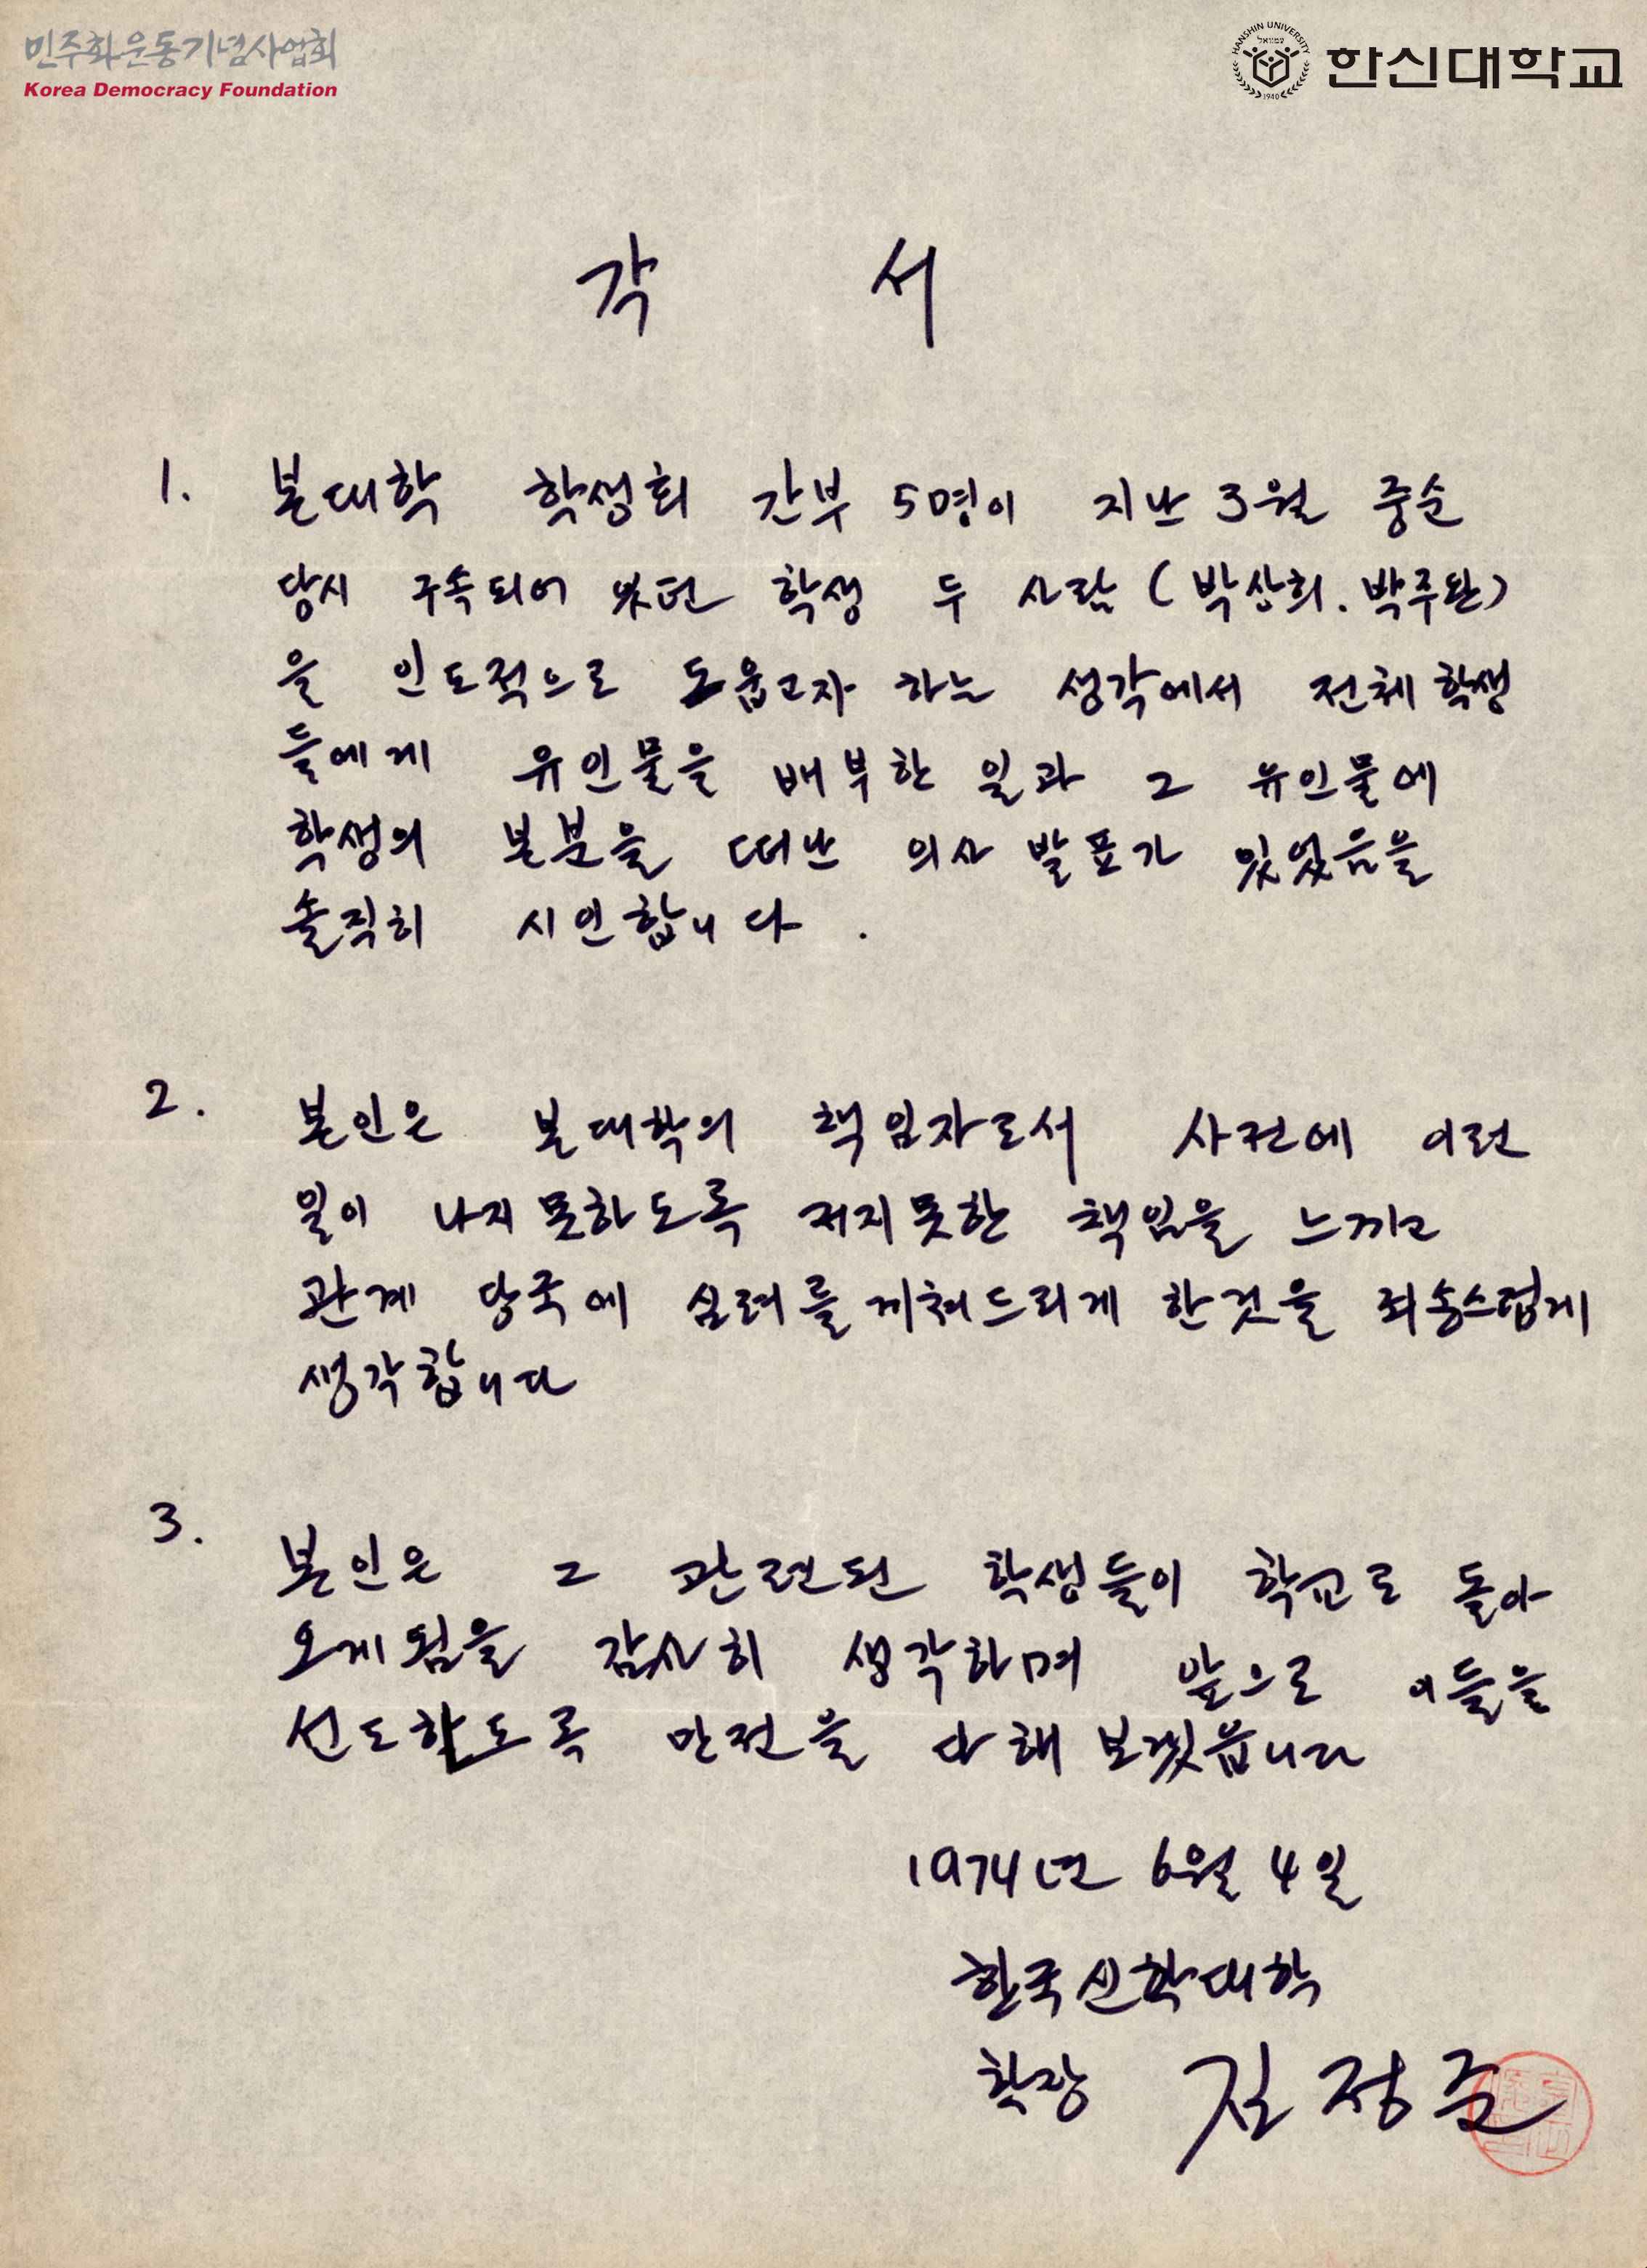 민주화운동기념사업회
Korea Democracy Foundation
HANSHIN UNIVERSITY
1940
한신대학교
각 서
1. 본대학 학생회 간부 5명이 지난 3월 중순
당시 구속되어 있던 학생 두 사람 (박상희. 박주환)
을 인도적으로 도웁고자 하는 생각에서 전체 학생
들에게 유인물을 배부한 일과 그 유인물에
학생의 본분을 떠난 의사 발표가 있었음을
솔직히 시인합니다.
2. 본인은 본대학의 책임자로서 사전에 이런
일이 나지 못하도록 저지 못한 책임을 느끼고
관계 당국에 심려를 끼쳐드리게 한것을 죄송스럽게
생각합니다
3. 본인은 그 관련된 학생들이 학교로 돌아
오게됨을 감사히 생각하며 앞으로 이들을
선도하도록 만전을 다해 보겠읍니다
1974년 6월 4일
한국신학대학
학장 김정준